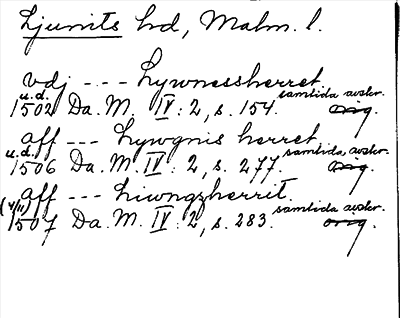 Ljunits hd, Malm. l.
vdj --- Lywnessherret
u.d. samtida avskr.
1502 Da. M. IV: 2, s. 154. orig.
aff --- Lywgnis herret
u.d. samtida avskr.
1506 Da. M. IV: 2, s. 277. orig.
aff --- Liwngzherrit.
(4/11) samtida avskr.
1507 Da. M. IV: 2, s. 283. orig.